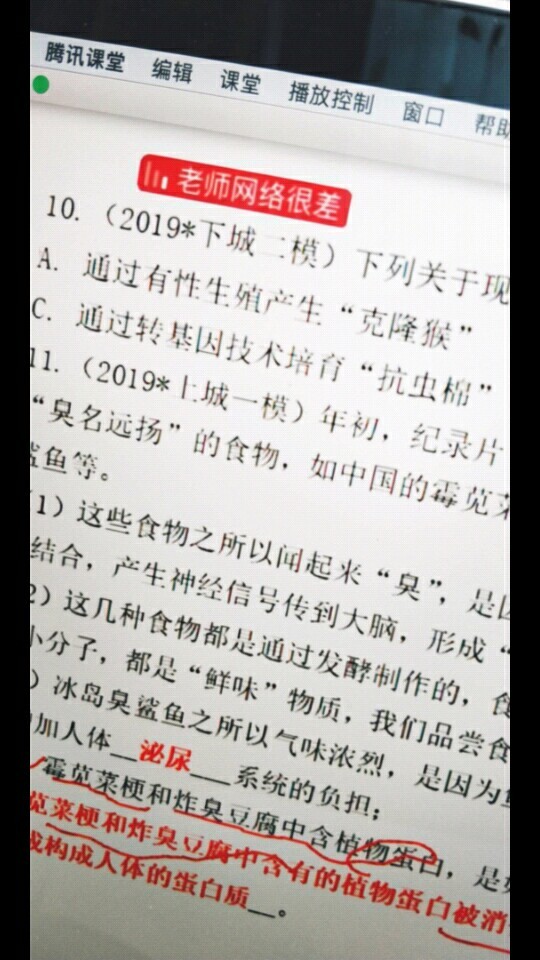 腾讯课堂 编辑 课堂 播放控制 窗口 帮助
老师网络很差
10. （2019*下城二模）下列关于现
A. 通过有性生殖产生“克隆猴”
C. 通过转基因技术培育“抗虫棉”
11. （2019*上城一模）年初，纪录片
“臭名远扬”的食物，如中国的霉苋菜
鲨鱼等。
1）这些食物之所以闻起来“臭”，是因
结合，产生神经信号传到大脑，形成“
2）这几种食物都是通过发酵制作的，食
小分子，都是“鲜味”物质，我们品尝食
）冰岛臭鲨鱼之所以气味浓烈，是因为
加人体__泌尿___系统的负担；
霉苋菜梗和炸臭豆腐中含植物蛋白，是
苋菜梗和炸臭豆腐中含有的植物蛋白被消
构成人体的蛋白质__。